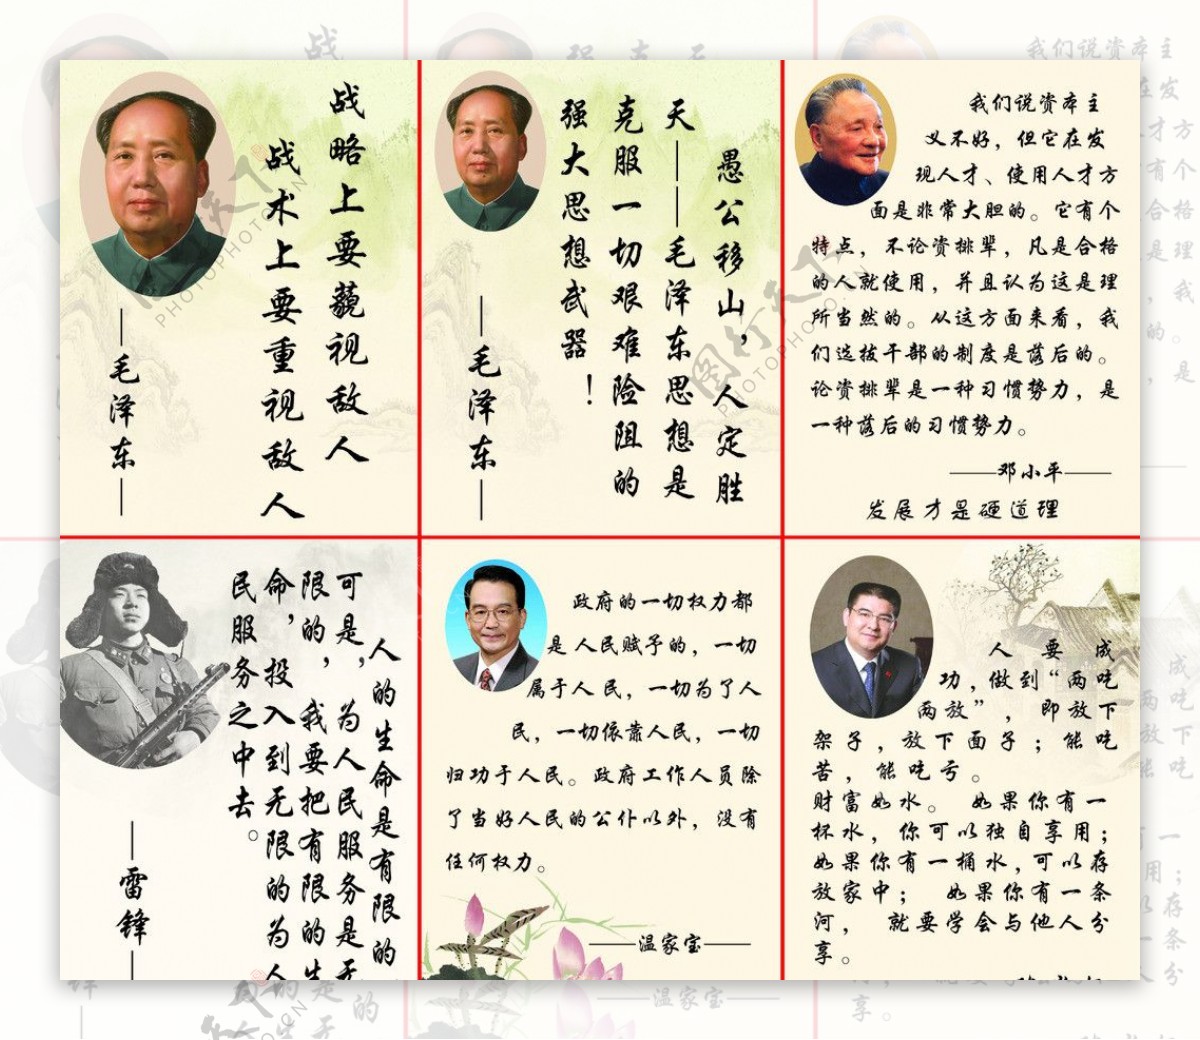 战略上要藐视敌人
战术上要重视敌人
—毛泽东—
愚公移山，人定胜
天——毛泽东思想是
克服一切艰难险阻的
强大思想武器！
—毛泽东—
我们说资本主
义不好，但它在发
现人才、使用人才方
面是非常大胆的。它有个
特点，不论资排辈，凡是合格
的人就使用，并且认为这是理
所当然的。从这方面来看，我
们选拔干部的制度是落后的。
论资排辈是一种习惯势力，是
一种落后的习惯势力。
——邓小平——
发展才是硬道理
人的生命是有限的
可是，为人民服务是无
限的，我要把有限的生
命，投入到无限的为人
民服务之中去。
—雷锋—
政府的一切权力都
是人民赋予的，一切
属于人民，一切为了人
民，一切依靠人民，一切
归功于人民。政府工作人员除
了当好人民的公仆以外，没有
任何权力。
——温家宝——
人要成
功，做到“两吃
两放”，即放下
架子，放下面子；能吃
苦，能吃亏。
财富如水。 如果你有一
杯水，你可以独自享用；
如果你有一桶水，可以存
放家中； 如果你有一条
河， 就要学会与他人分
享。
图行天下
PHOTOPHOTO.CN